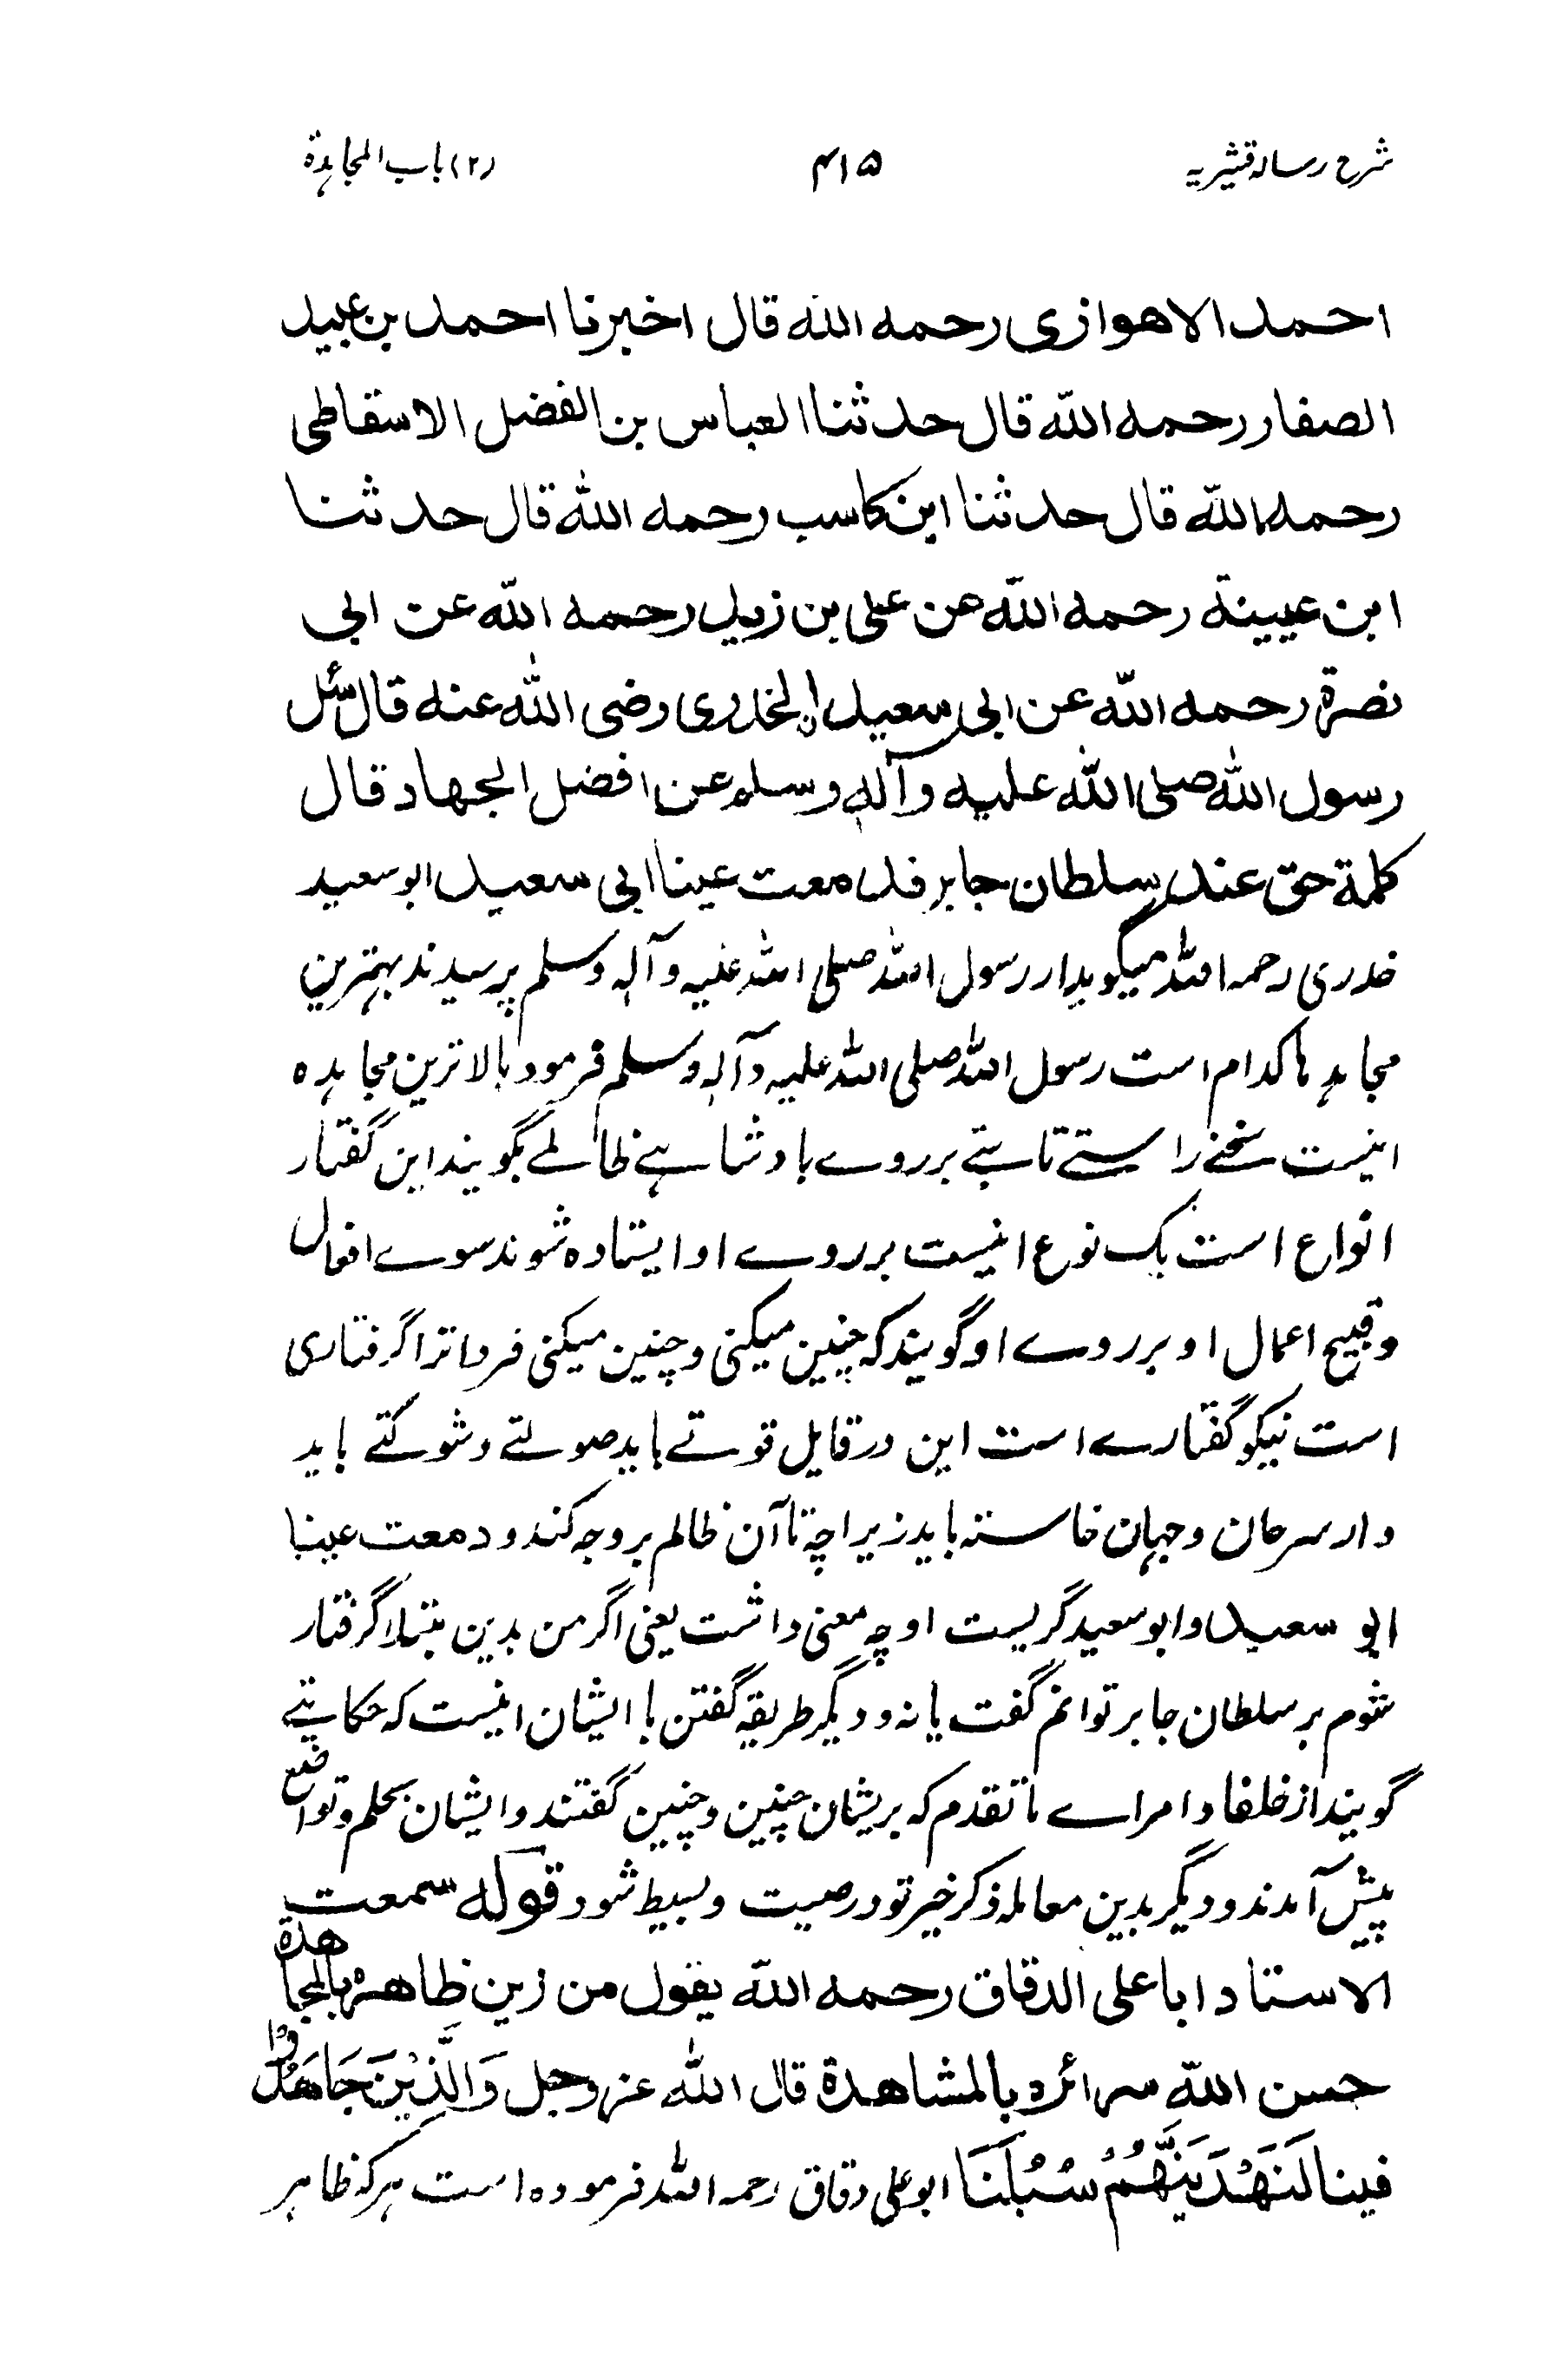 شرح رسالہ قشیریہ ۴۱۵ (۲) باب المجاہدۃ
احمد الاهوازی رحمه الله قال اخبرنا احمد بن عبید
الصفار رحمه الله قال حدثنا العباس بن الفضل الاسقاطی
رحمه الله قال حدثنا ابن کاسب رحمه الله قال حدثنا
ابن عیینة رحمه الله عن علی بن زید رحمه الله عن ابی
نضرة رحمه الله عن ابی سعید ن الخدری رضی الله عنه قال سئل
رسول الله صلی الله علیه وآله وسلم عن افضل الجهاد قال
کلمة حق عند سلطان جابر فدمعت عینا ابی سعید ابو سعید
خدری رحمہ اللہ میگوید از رسول اللہ صلی اللہ علیہ وآلہ وسلم پرسیدند بہترین
مجاہدہا کدام است رسول اللہ صلی اللہ علیہ وآلہ وسلم فرمود بالاترین مجاہدہ
اینست سخنے راستے تابتے بر روے بادشاہے ظالمے بگویند این گفتار
انواع است یک نوع اینست بر روے او ایستادہ شوند سوے افعال
و قبیح اعمال او بر روے او گویند کہ چنین میکنی و چنین میکنی فردا ترا گرفتاری
است نیکو گفتارے است این در قایل قوتے باید صولتے و شوکتے باید
و از سرجان و جہان خاستہ باید زیرا چہ تا آن ظالم بر وجہ کند ودمعت عینا
ابو سعید و ابو سعید گریست او چہ معنی داشت یعنی اگر من بدین مبتلا گرفتار
شوم بر سلطان جابر توانم گفت یا نہ و دیگر طریقہ گفتن با ایشان اینست کہ حکایتے
گویند از خلفا و امراے ما تقدم کہ بریشان چنین و چنین گفتند و ایشان بحلم و تواضع
پیش آمدند و دیگر بدین معاملہ ذکر خیر تو در صیت و بسیط شود قوله سمعت
الاستاد ابا علی الدقاق رحمه الله یقول من زین ظاهره بالمجاهدة
حسن الله سرائره بالمشاهدة قال الله عز وجل وَالَّذِیْنَ جَاهَدُوْا
فینا لَنَهْدِیَنَّهُمْ سُبُلَنَا ابو علی دقاق رحمہ اللہ فرمودہ است ہر کہ ظاہر